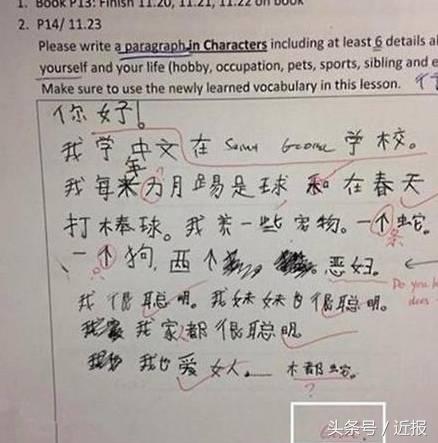 1. Book P13: Finish 11.20, 11.21, 11.22 on book
2. P14/ 11.23
Please write a paragraph in Characters including at least 6 details
yourself and your life (hobby, occupation, pets, sports, sibling and
Make sure to use the newly learned vocabulary in this lesson.
你好!
我学中文在 学校。
我每年 月踢是球和在春天
打棒球。我养一些宠物。一个蛇。
一个狗,两个 恶妇。
Do you
我很聪明。我妹妹也很聪明。
我家都很聪明。
我也爱女人。 木都蛇。
?
头条号 / 近报